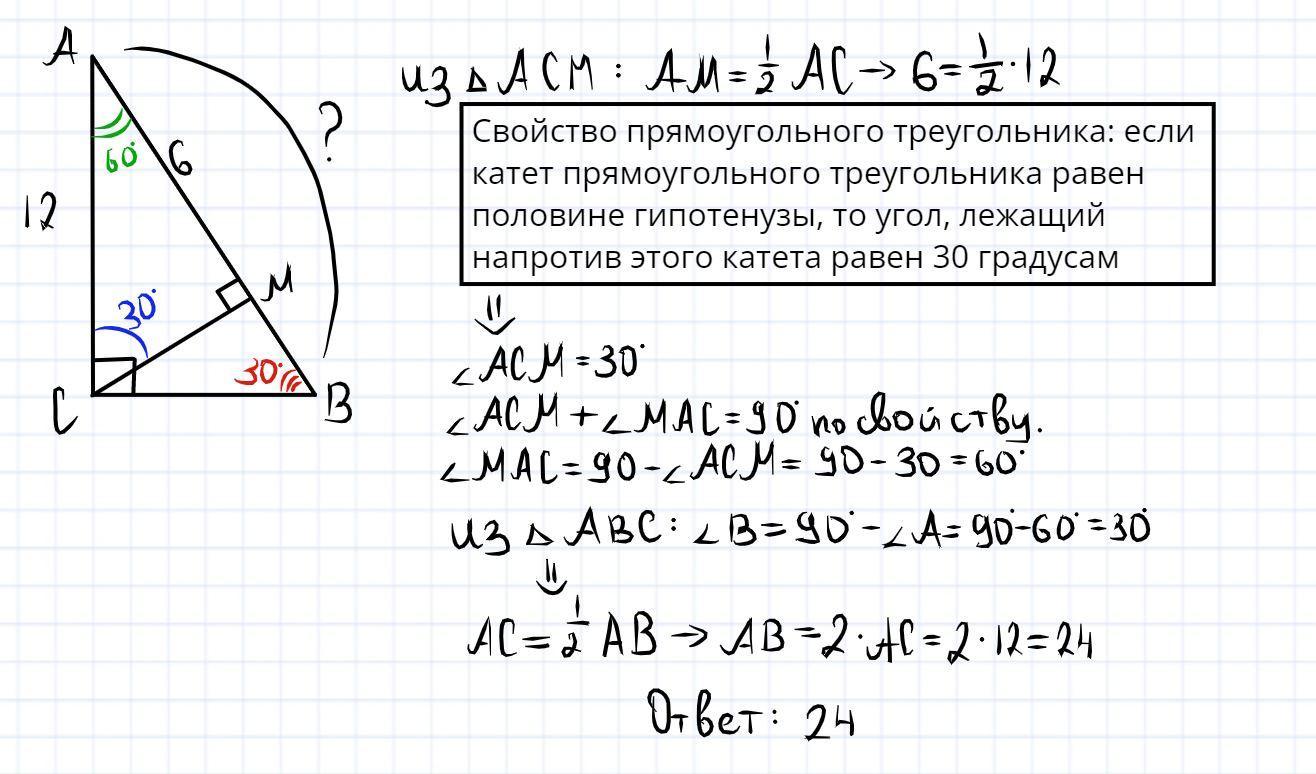 A
6
60°
?
12
M
30°
30°
C
B
из △ ACM : AM = 1/2 AC → 6 = 1/2 · 12
Свойство прямоугольного треугольника: если
катет прямоугольного треугольника равен
половине гипотенузы, то угол, лежащий
напротив этого катета равен 30 градусам
⇓
∠ACM = 30°
∠ACM + ∠MAC = 90° по свойству.
∠MAC = 90 - ∠ACM = 90 - 30 = 60°
из △ ABC : ∠B = 90° - ∠A = 90° - 60° = 30°
⇓
AC = 1/2 AB → AB = 2 · AC = 2 · 12 = 24
Ответ: 24